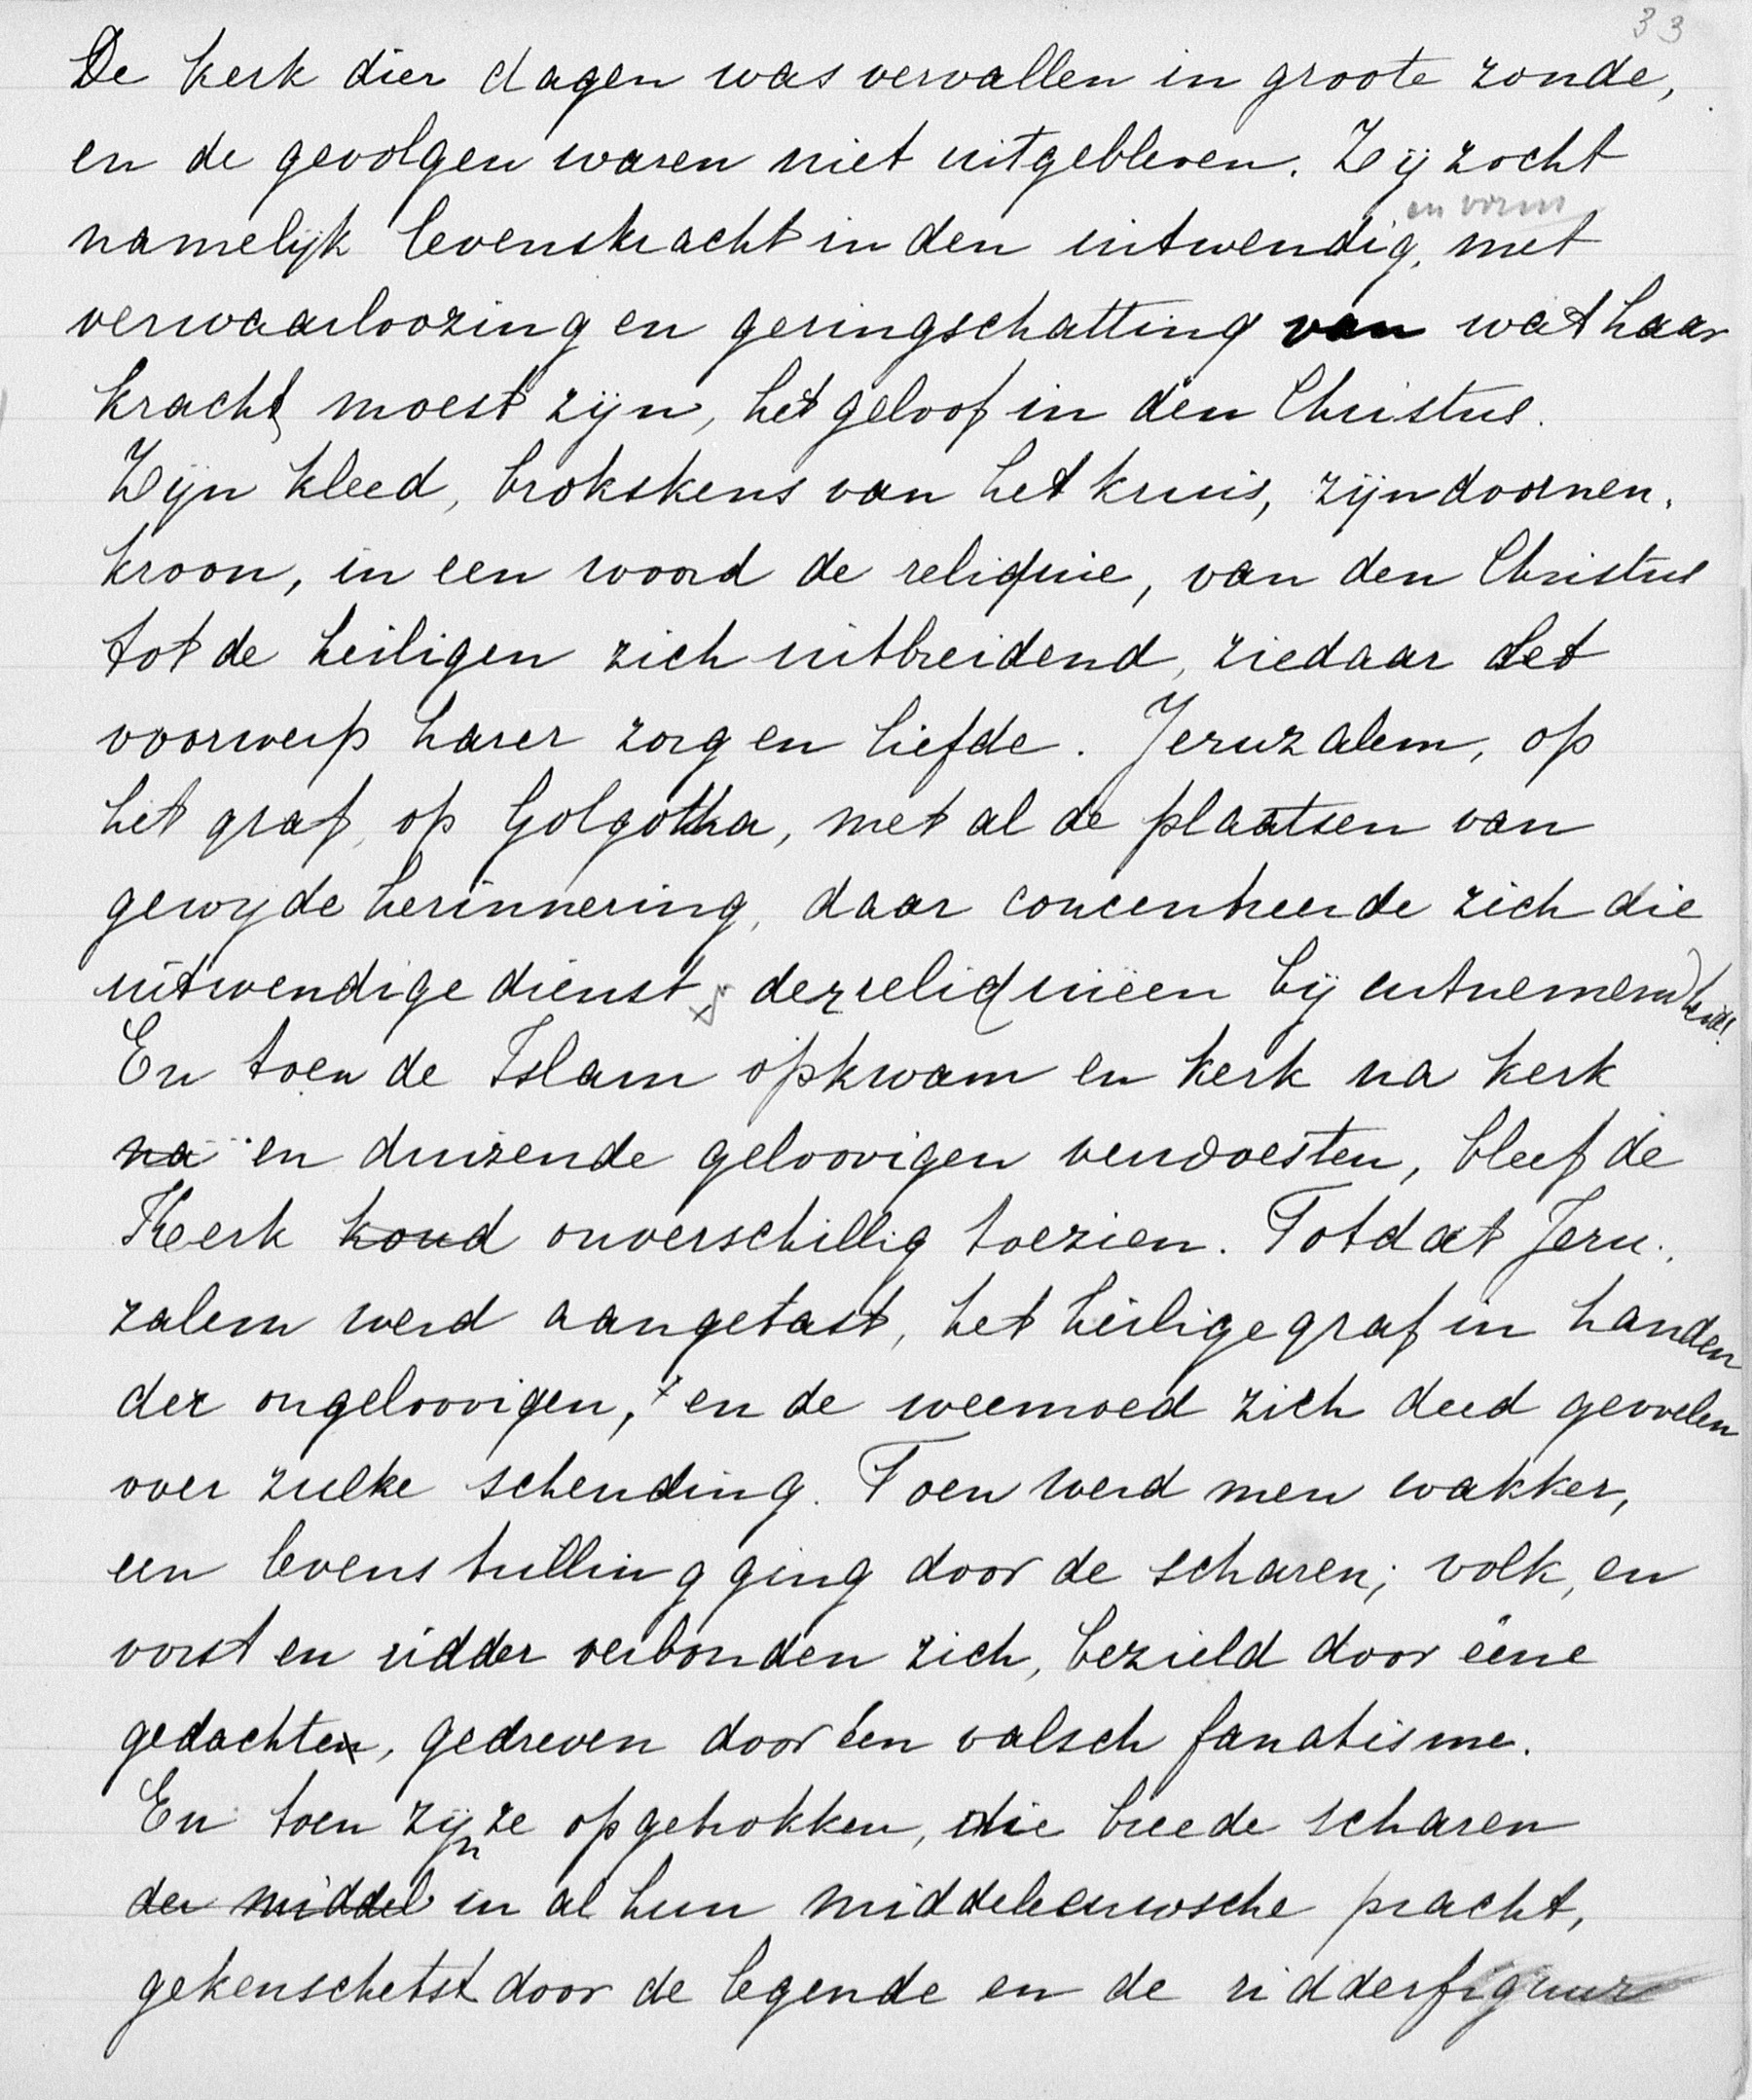 33
De kerk dier dagen was vervallen in groote zonde,
en de gevolgen waren niet uitgebleven. Zij zocht
en vorm
namelijk levenskracht in den uitwendig, met
verwaarloozing en geringschatting van wat haar
kracht moest zijn, het geloof in den Christus.
Zijn kleed, brokskens van het kruis, zijn doornen-
kroon, in een woord de reliquie, van den Christus
tot de heiligen zich uitbreidend, ziedaar het
voorwerp harer zorg en liefde. Jeruzalem, op
het graf, op Golgotha, met al de plaatsen van
gewijde herinnering, daar concentreerde zich die
uitwendige dienst der reliquieën bij uitnemendheid!
En toen de Islam opkwam en kerk na kerk
na en duizende geloovigen verwoesten, bleef de
Kerk koud onverschillig toezien. Totdat Jeru-
zalem werd aangetast, het heilige graf in handen
der ongeloovigen, en de weemoed zich deed gevoelen
over zulke schending. Toen werd men wakker,
een levenstrilling ging door de scharen; volk, en
vorst en ridder verbonden zich, bezield door ééne
gedachten, gedreven door één valsch fanatisme.
En toen zijn ze opgetrokken, die breede scharen
der middel in al hun middeleeuwsche pracht,
gekenschetst door de legende en de ridderfiguur